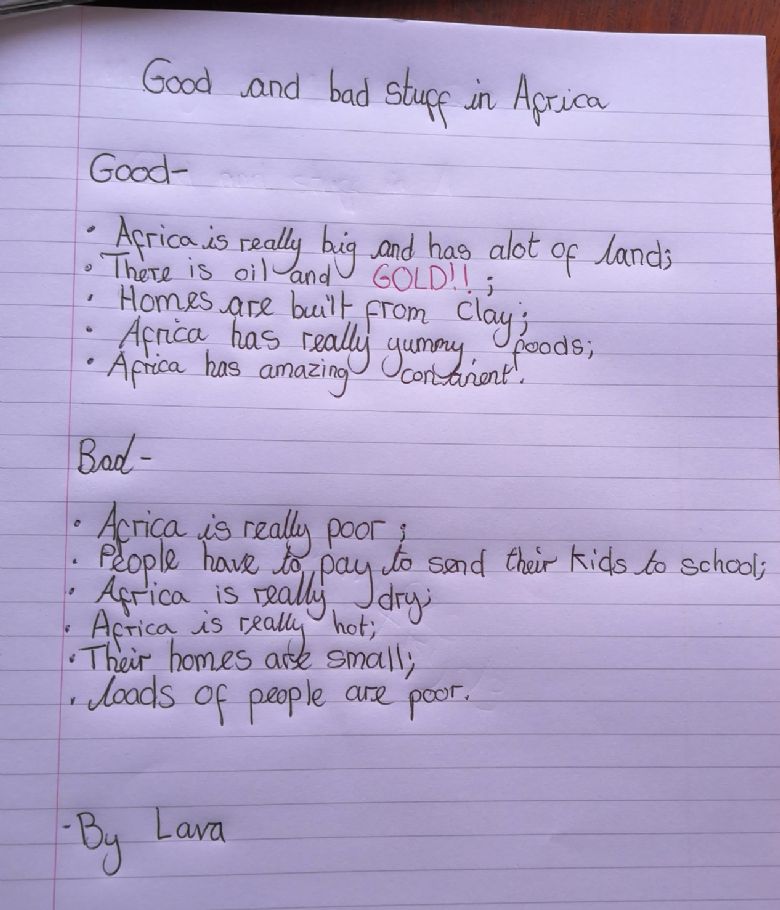 Good and bad stuff in Africa
Good-
• Africa is really big and has alot of land;
• There is oil and GOLD!! ;
• Homes are built from clay;
• Africa has really yummy foods;
• Africa has amazing contanent.
Bad-
• Africa is really poor ;
• People have to pay to send their kids to school;
• Africa is really dry;
• Africa is really hot;
• Their homes are small;
• loads of people are poor.
-By Lava